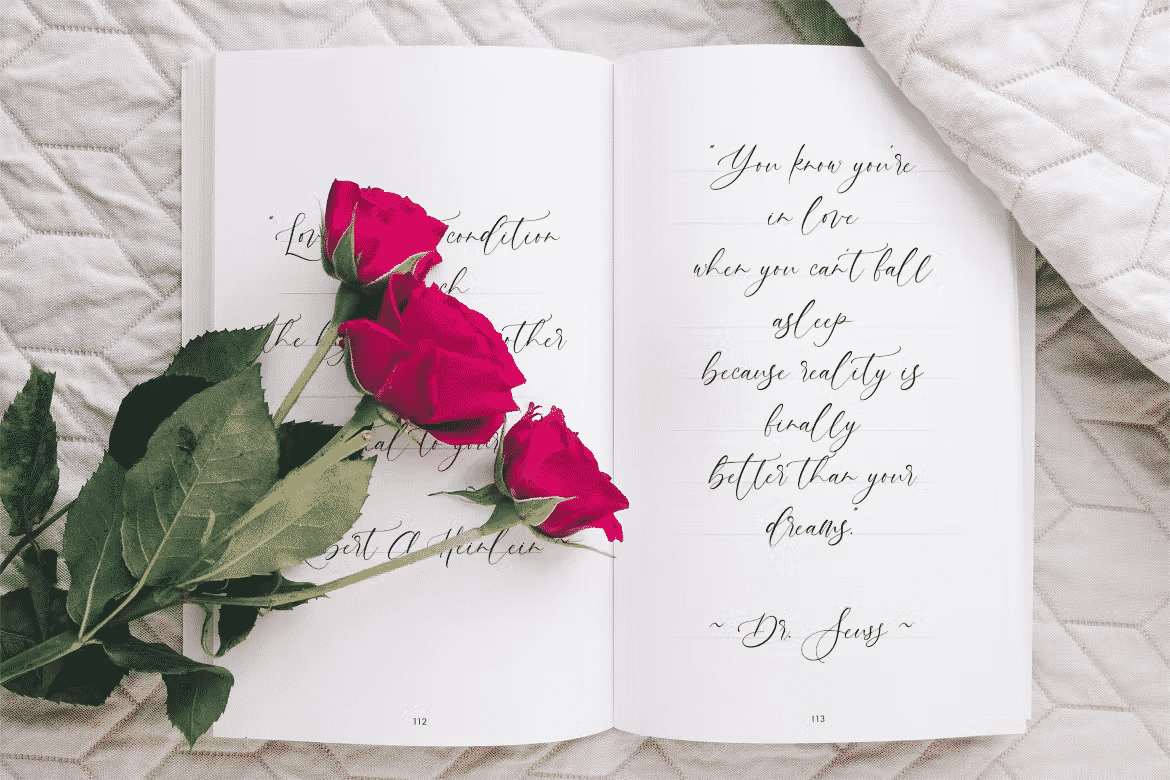 condition
the
to your
A Heinlein ~
112
"You know you're
in love
when you can't fall
asleep
because reality is
finally
better than your
dreams."
~ Dr. Seuss ~
113